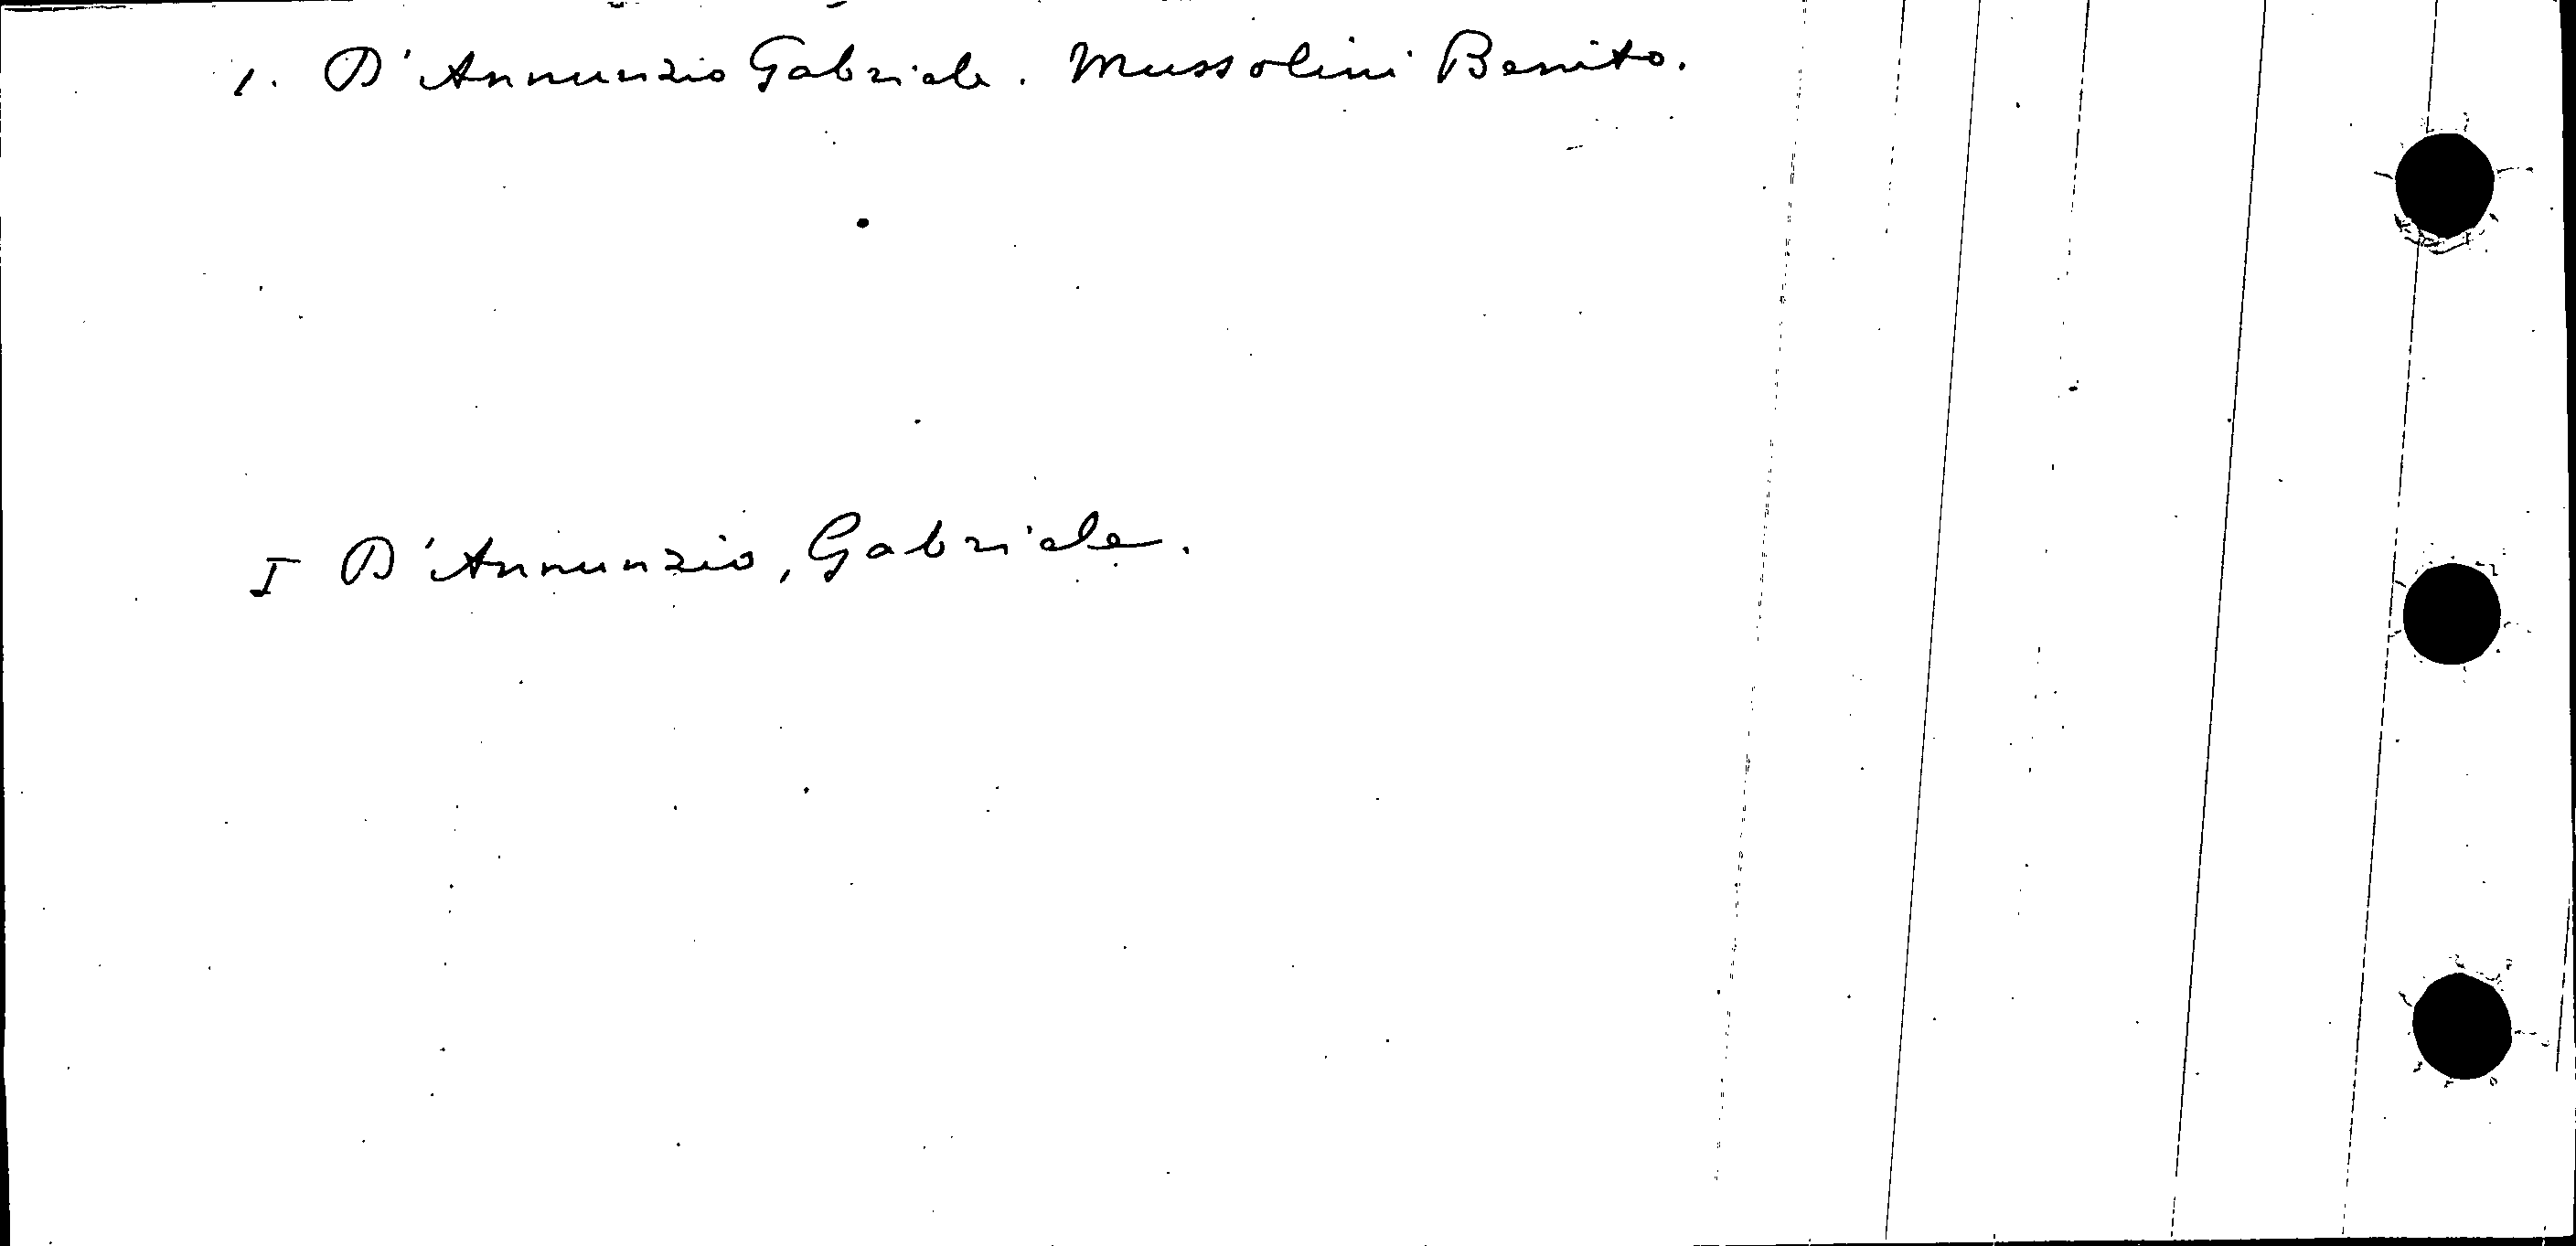 1. D'Annunzio Gabriele. Mussolini Benito.
I D'Annunzio, Gabriele.